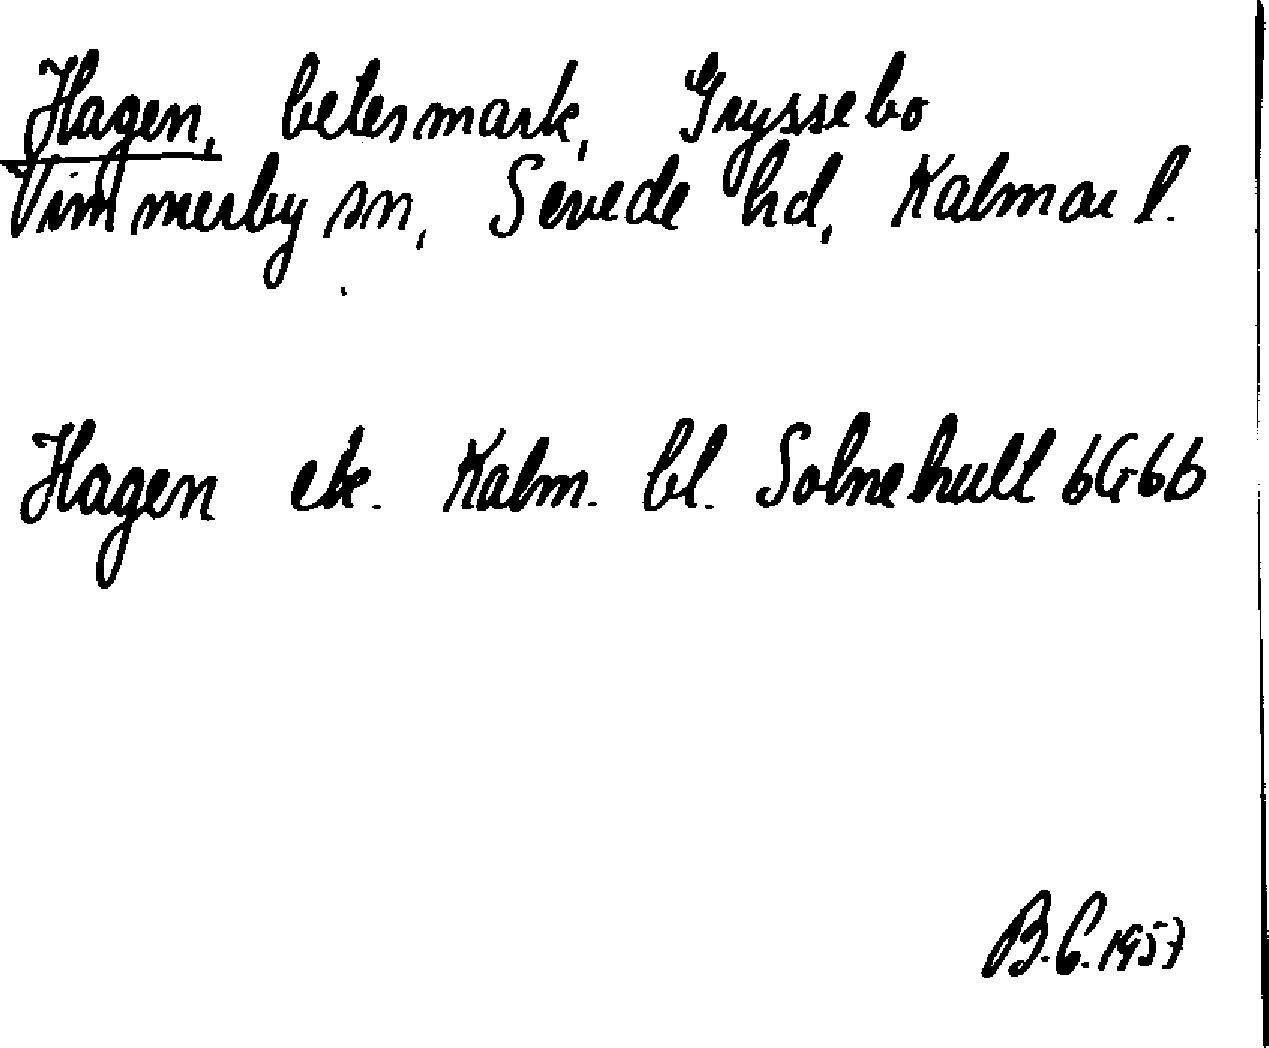 Hagen, betesmark, Gryssebo
Vimmerby sn, Sevede hd, Kalmar l.
Hagen ek. Kalm. bl. Solnehult 6G6b
B.C. 1957